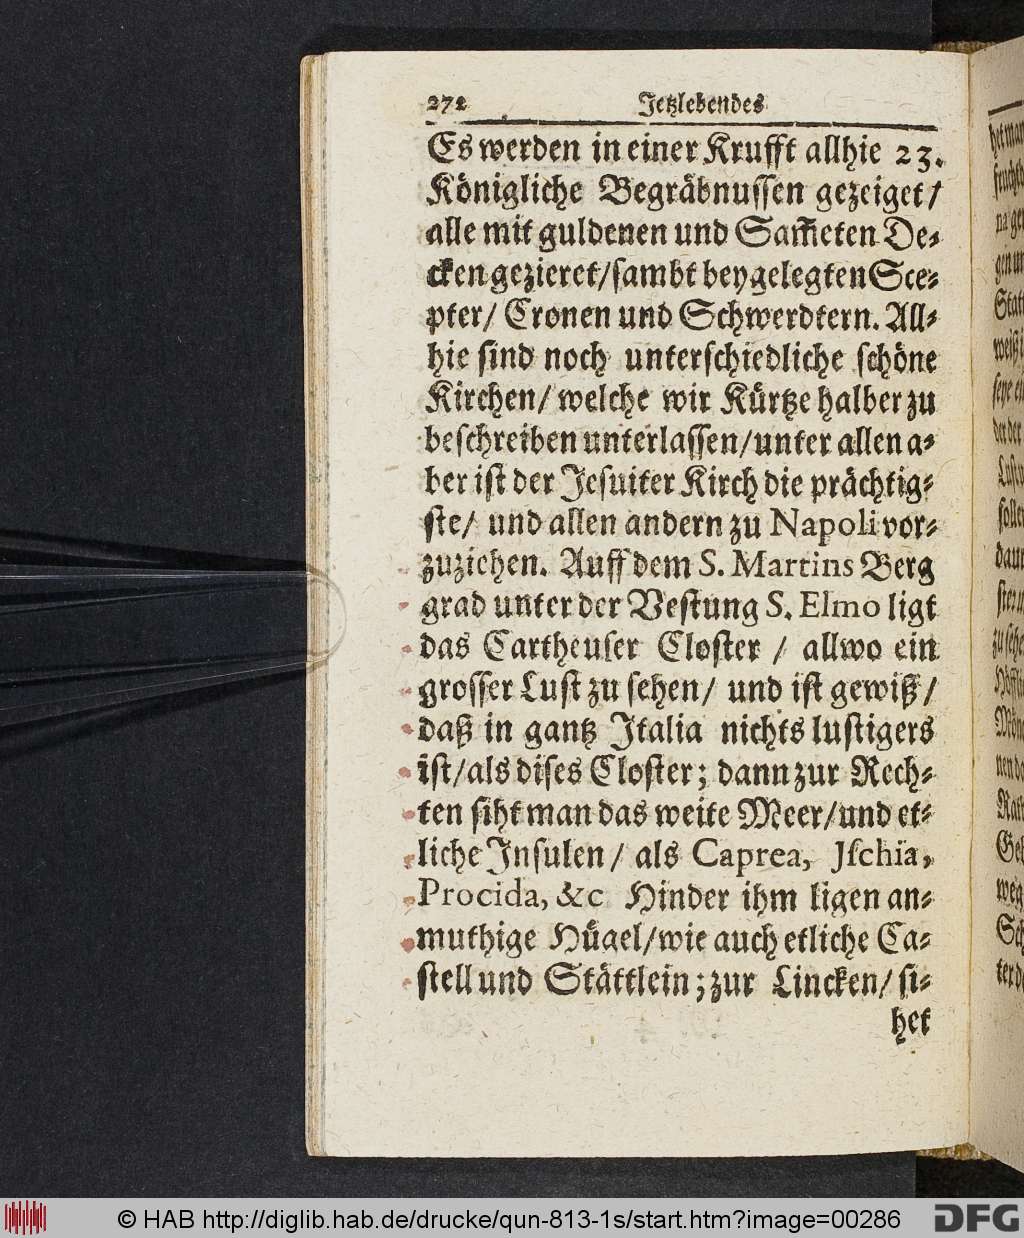 272 Jetzlebendes
Es werden in einer Krufft allhie 23.
Königliche Begräbnussen gezeiget/
alle mit guldenen und Sam̃eten De-
cken gezieret/sambt beygelegten Sce-
pter/ Cronen und Schwerdtern. All-
hie sind noch unterschiedliche schöne
Kirchen/ welche wir Kürtze halber zu
beschreiben unterlassen/unter allen a-
ber ist der Jesuiter Kirch die prächtig-
ste/ und allen andern zu Napoli vor-
zuziehen. Auff dem S. Martins Berg
grad unter der Vestung S. Elmo ligt
das Cartheuser Closter / allwo ein
grosser Lust zu sehen/ und ist gewiß/
daß in gantz Italia nichts lustigers
ist/als dises Closter; dann zur Rech-
ten siht man das weite Meer/und et-
liche Insulen/ als Caprea, Jschia,
Procida, &c Hinder ihm ligen an-
muthige Hügel/wie auch etliche Ca-
stell und Stättlein; zur Lincken/ si-
het
© HAB http://diglib.hab.de/drucke/qun-813-1s/start.htm?image=00286
DFG